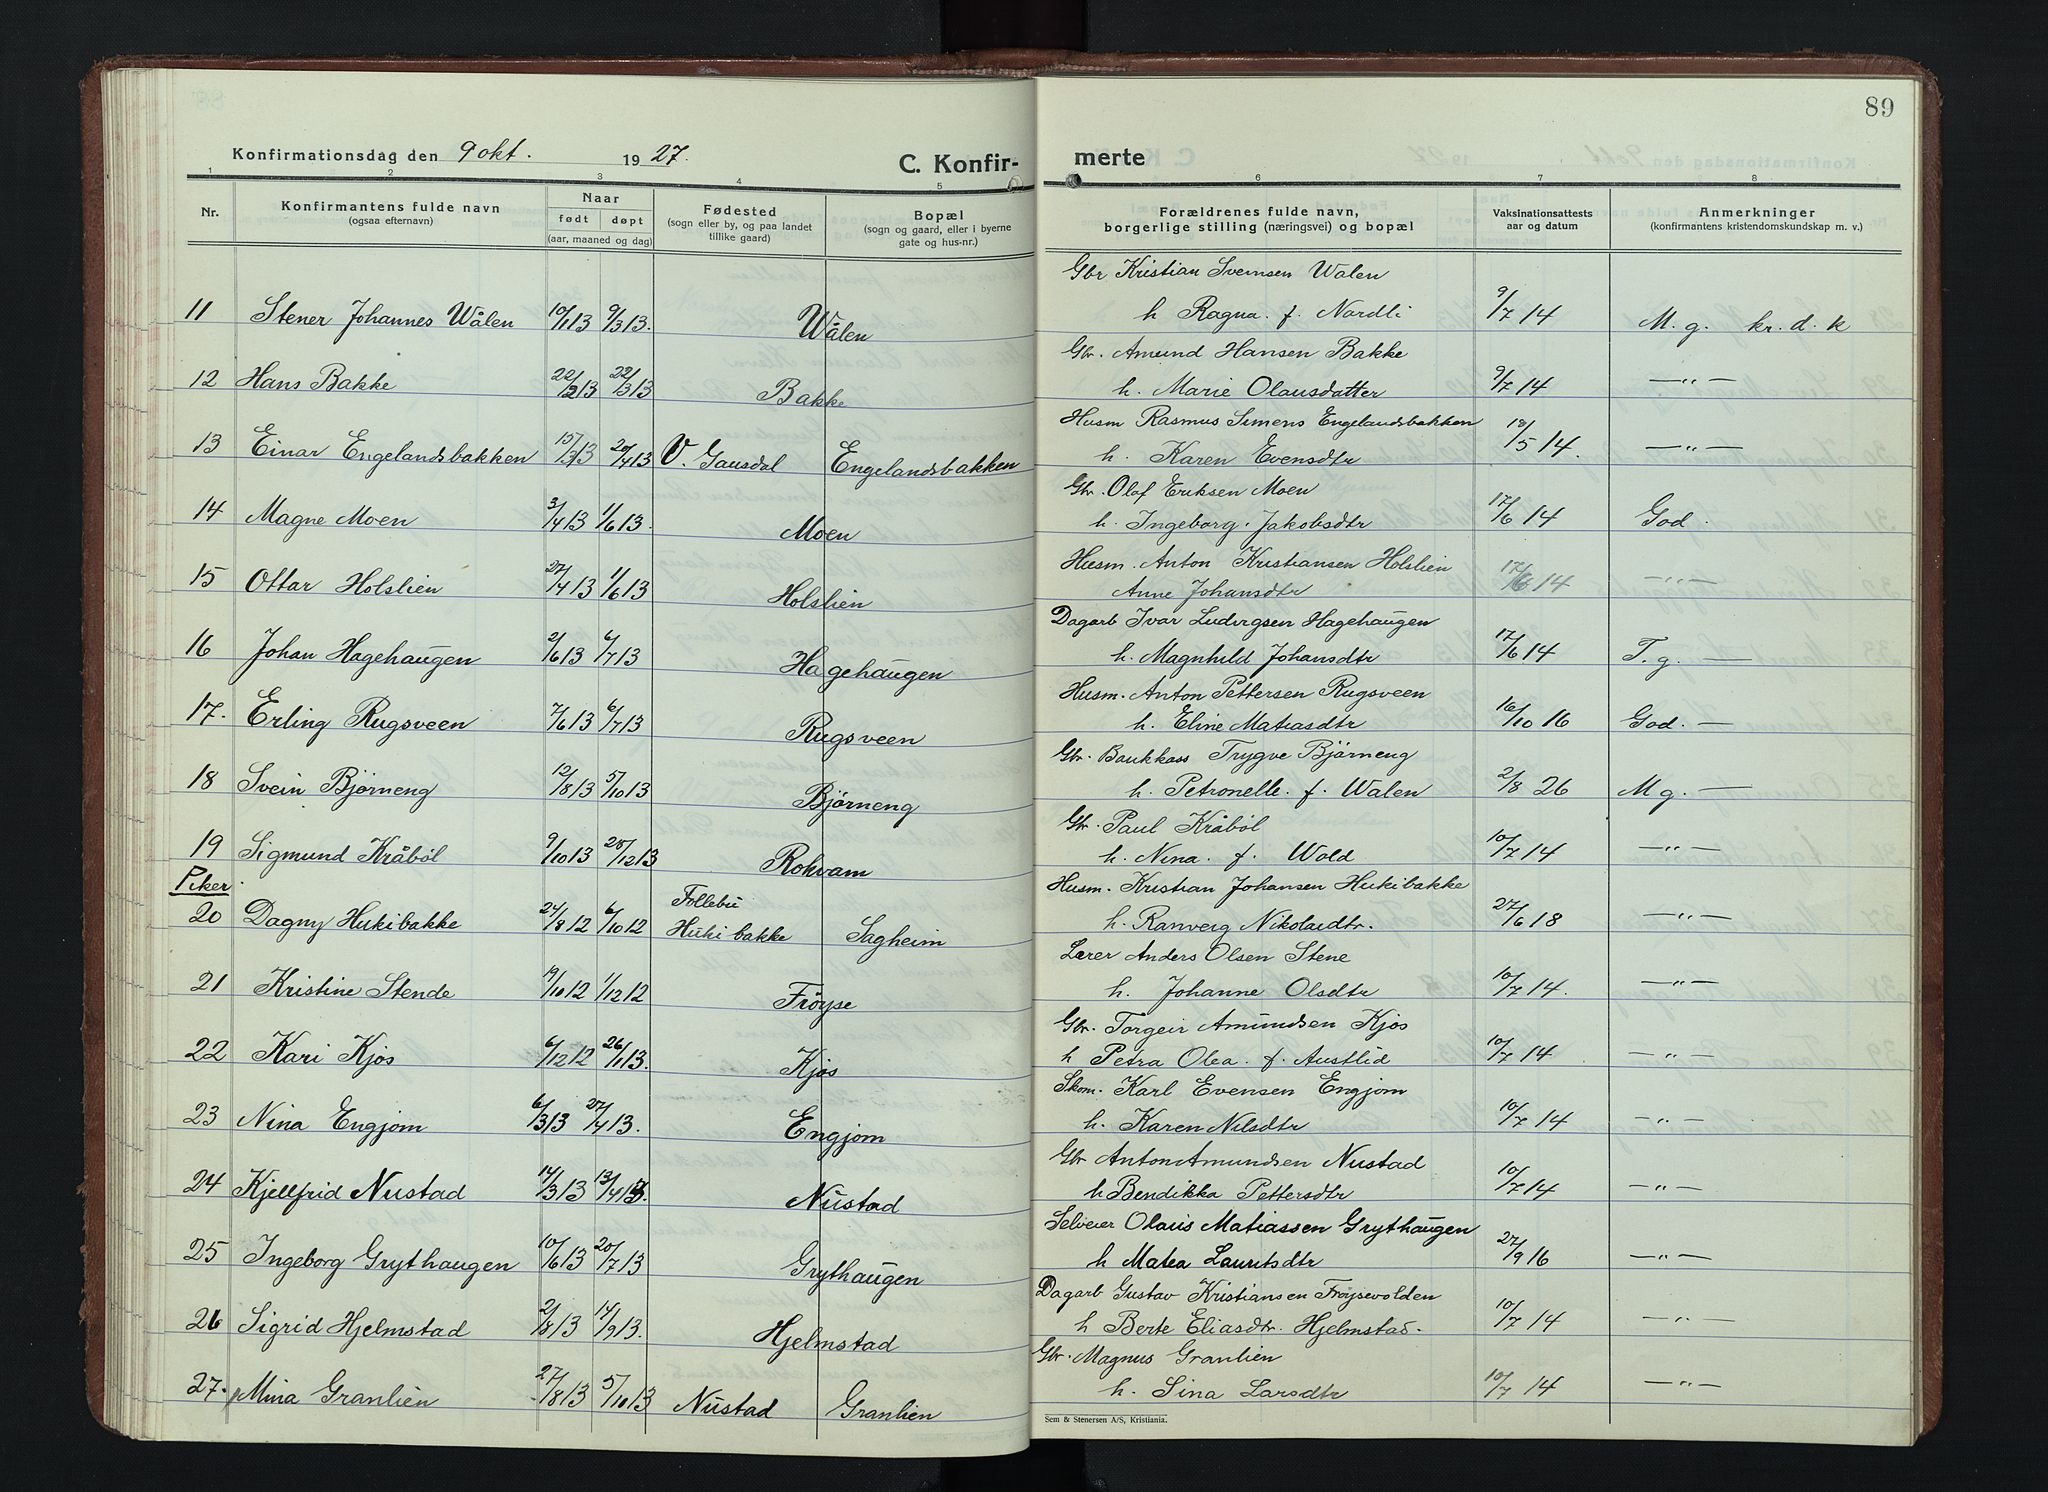 89
Konfirmationsdag den 9 okt. 1927. C. Konfir-merte
1 2 3 4 5 6 7 8
Nr. Konfirmantens fulde navn (ogsaa efternavn) Naar født døpt (aar, maaned og dag) Fødested (sogn eller by, og paa landet tillike gaard) Bopæl (sogn og gaard, eller i byerne gate og hus-nr.) Forældrenes fulde navn, borgerlige stilling (næringsvei) og bopæl Vaksinationsattests aar og datum Anmerkninger (konfirmantens kristendomskundskap m. v.)
Gbr Kristian Svensen Wålen
11 Stener Johannes Wålen 10/1 13 9/3 13. Wålen h Ragna. f. Nordli 9/7 14 M. g. kr. d. k
Gbr. Amund Hansen Bakke
12 Hans Bakke 22/2 13 22/3 13 Bakke h. Marie Olausdatter 9/7 14 —„—
Husm Rasmus Simens Engelandsbakken
13 Einar Engelandsbakken 15/3 13 20/4 13 V. Gausdal Engelandsbakken h. Karen Evensdtr 18/5 14. —„—
Gbr. Olaf Eriksen Moen
14 Magne Moen 3/4 13 1/6 13. Moen h. Ingeborg Jakobsdtr 17/6 14 God.
Husm. Anton Kristiansen Holslien
15 Ottar Holslien 27/4 13 1/6 13 Holslien Anne Johansdtr 17/6 14 —„—
Dagarb Ivar Ludvigsen Hagehaugen
16 Johan Hagehaugen 2/6 13 6/7 13 Hagehaugen h. Magnhild Johansdtr 17/6 14 T. g. —
Husm. Anton Pettersen Rugsveen
17. Erling Rugsveen 7/6 13 6/7 13 Rugsveen h. Eline Matiasdtr 16/10 16 God. —
Gbr. Bankkass Trygve Bjørneng
18 Svein Bjørneng 12/8 13 5/10 13 Bjørneng h. Petronelle. f. Walen 2/8 26 M g. —
Gbr. Paul Kråbøl
19 Sigmund Kråbøl 9/10 13 20/12 13 Rokvam h. Nina. f. Wold 10/7 14 —„—
Piker.
Husm. Kristian Johansen Hukibakke
20 Dagny Hukibakke 24/8 12 6/10 12 Follebu Hukibakke Sagheim h. Ranveig Nikolaidtr. 27/6 18 —„—
Lærer Anders Olsen Stene
21 Kristine Stende 19/10 12 1/12 12 Frøyse h. Johanne Olsdtr 10/7 14. —„—
Gbr. Torgeir Amundsen Kjos
22 Kari Kjos 6/12 12 26/1 13. Kjos h Petra Olea. f. Austlid 10/7 14 —„—
Skom. Karl Evensen Engjom
23 Nina Engjom 6/3 13 27/4 13. Engjom h. Karen Nilsdtr 10/7 14 —„—
Gbr Anton Amundsen Nustad
24 Kjellfrid Nustad 14/3 13 13/4 13. Nustad h Bendikka Pettersdtr 10/7 14 —„—
Selveier Olaus Matiassen Grythaugen
25 Ingeborg Grythaugen 10/6 13 20/7 13 Grythaugen h Matea Lauritsdtr 27/9 16 —„—
Dagarb Gustav Kristiansen Frøysevolden
26 Sigrid Hjelmstad 2/8 13 14/9 13. Hjelmstad h Berte Eliasdtr. Hjelmstad. 10/7 14 —„—
Gbr. Magnus Granlien
27. Mina Granlien 27/8 13 5/10 13 Nustad Granlien h. Sina Larsdtr 10/7 14 —„—
Sem & Stenersen A/S, Kristiania.